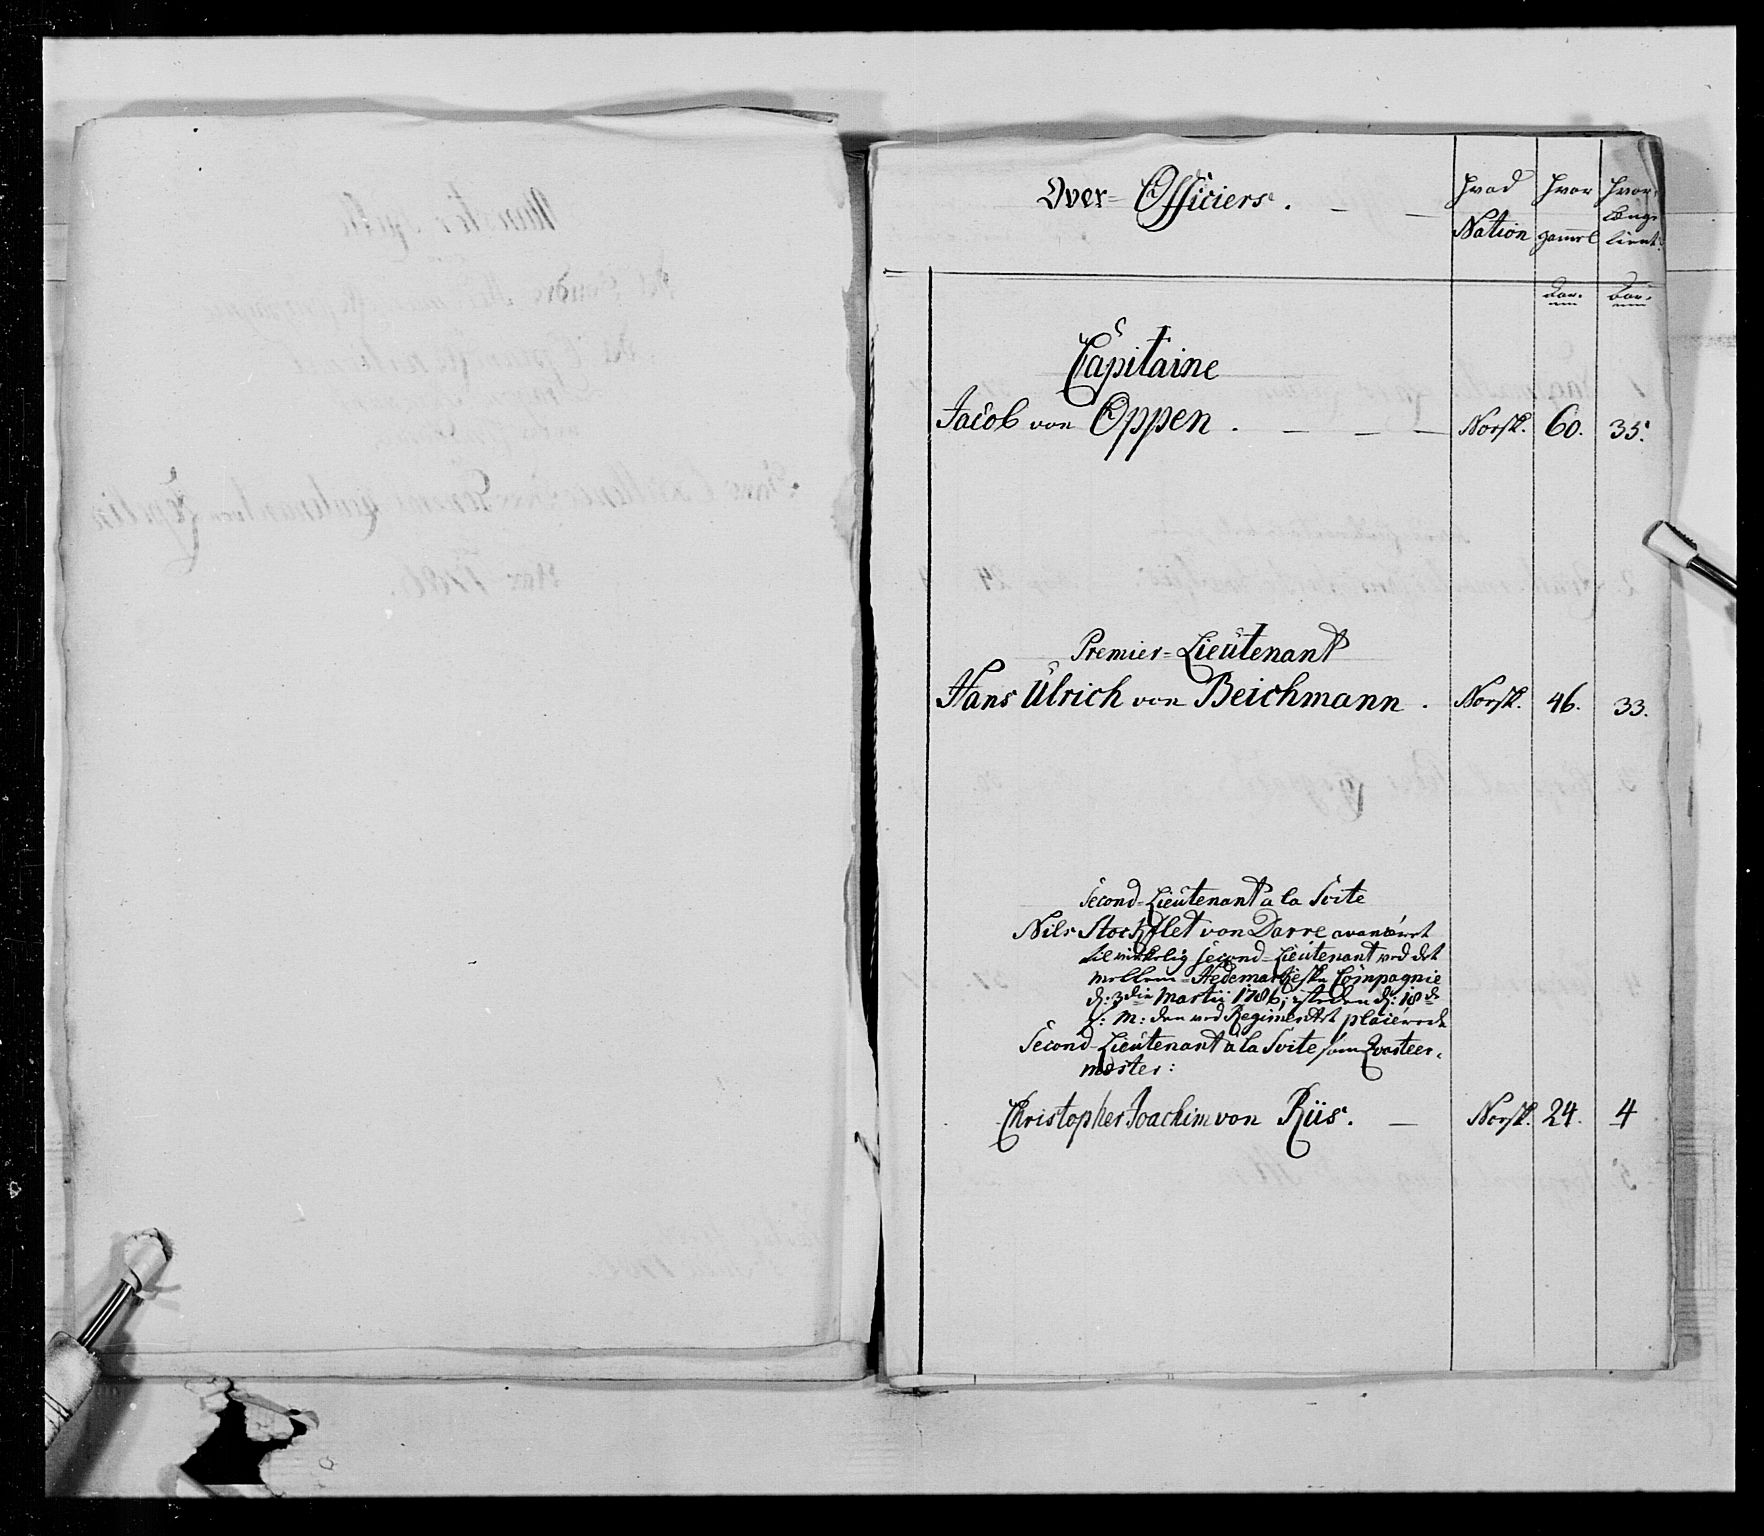 Over= Officiers. — —
Hvad Nation
Hvor gammel
Hvor længe tient.
Aar.
Aar.
Capitaine
Jacob von Oppen. — — — Norsk. 60. 35.
Premier=Lieutenant
Hans Ulrich von Beichmann. Norsk. 46. 33.
Second=Lieutenant a la Svite
Nils Stockflet von Darre avanceret
til virkelig Second=Lieutenant ved det
mellem=Hedemarkeske Compagnie
d: 3die Martii 1786; isteden d: 18de
s: M: den ved Regimentet placerede
Second=Lieutenant a la Svite som Qvarteer=
mester:
Christopher Joachim von Riis. — Norsk. 24. 4